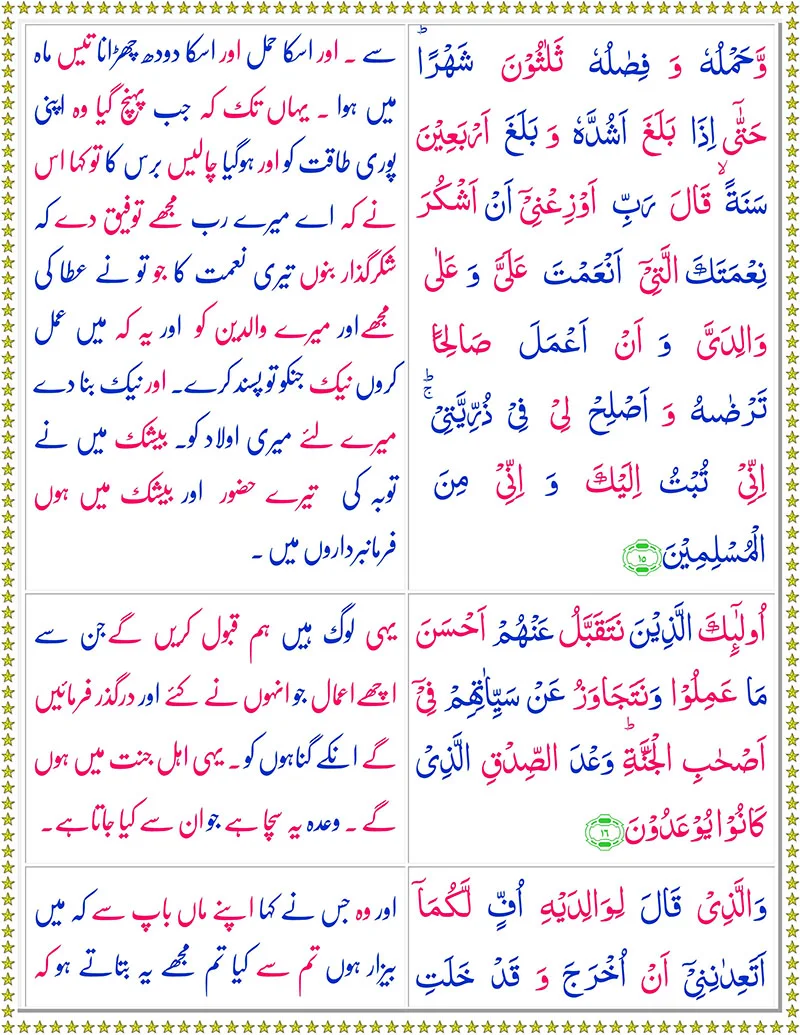 وَّحَمْلُهٗ وَ فِصٰلُهٗ ثَلٰثُوْنَ شَهْرًا ؕ
حَتّٰۤى اِذَا بَلَغَ اَشُدَّهٗ وَ بَلَغَ اَرْبَعِيْنَ
سَنَةً ۙ قَالَ رَبِّ اَوْزِعْنِيْۤ اَنْ اَشْكُرَ
نِعْمَتَكَ الَّتِيْۤ اَنْعَمْتَ عَلَيَّ وَ عَلٰى
وَالِدَيَّ وَ اَنْ اَعْمَلَ صَالِحًا
تَرْضٰىهُ وَ اَصْلِحْ لِيْ فِيْ ذُرِّيَّتِيْ ۚؕ
اِنِّيْ تُبْتُ اِلَيْكَ وَ اِنِّيْ مِنَ
الْمُسْلِمِيْنَ ۱۵
سے ۔ اور اسکا حمل اور اسکا دودھ چھڑانا تیس ماہ
میں ہوا ۔ یہاں تک کہ جب پہنچ گیا وہ اپنی
پوری طاقت کو اور ہوگیا چالیس برس کا تو کہا اس
نے کہ اے میرے رب مجھے توفیق دے کہ
شکرگذار بنوں تیری نعمت کا جو تو نے عطا کی
مجھے اور میرے والدین کو اور یہ کہ میں عمل
کروں نیک جنکو تو پسند کرے۔ اور نیک بنا دے
میرے لئے میری اولاد کو۔ بیشک میں نے
توبہ کی تیرے حضور اور بیشک میں ہوں
فرمانبرداروں میں ۔
اُولٰٓئِكَ الَّذِيْنَ نَتَقَبَّلُ عَنْهُمْ اَحْسَنَ
مَا عَمِلُوْا وَنَتَجَاوَزُ عَنْ سَيِّاٰتِهِمْ فِيْۤ
اَصْحٰبِ الْجَنَّةِ ؕ وَعْدَ الصِّدْقِ الَّذِيْ
كَانُوْا يُوْعَدُوْنَ ۱۶
یہی لوگ ہیں ہم قبول کریں گے جن سے
اچھے اعمال جو انہوں نے کئے اور درگذر فرمائیں
گے انکے گناہوں کو ۔ یہی اہل جنت میں ہوں
گے ۔ وعدہ یہ سچا ہے جو ان سے کیا جاتا ہے۔
وَالَّذِيْ قَالَ لِوَالِدَيْهِ اُفٍّ لَّكُمَاۤ
اَتَعِدٰنِنِيْۤ اَنْ اُخْرَجَ وَ قَدْ خَلَتِ
اور وہ جس نے کہا اپنے ماں باپ سے کہ میں
بیزار ہوں تم سے کیا تم مجھے یہ بتاتے ہو کہ